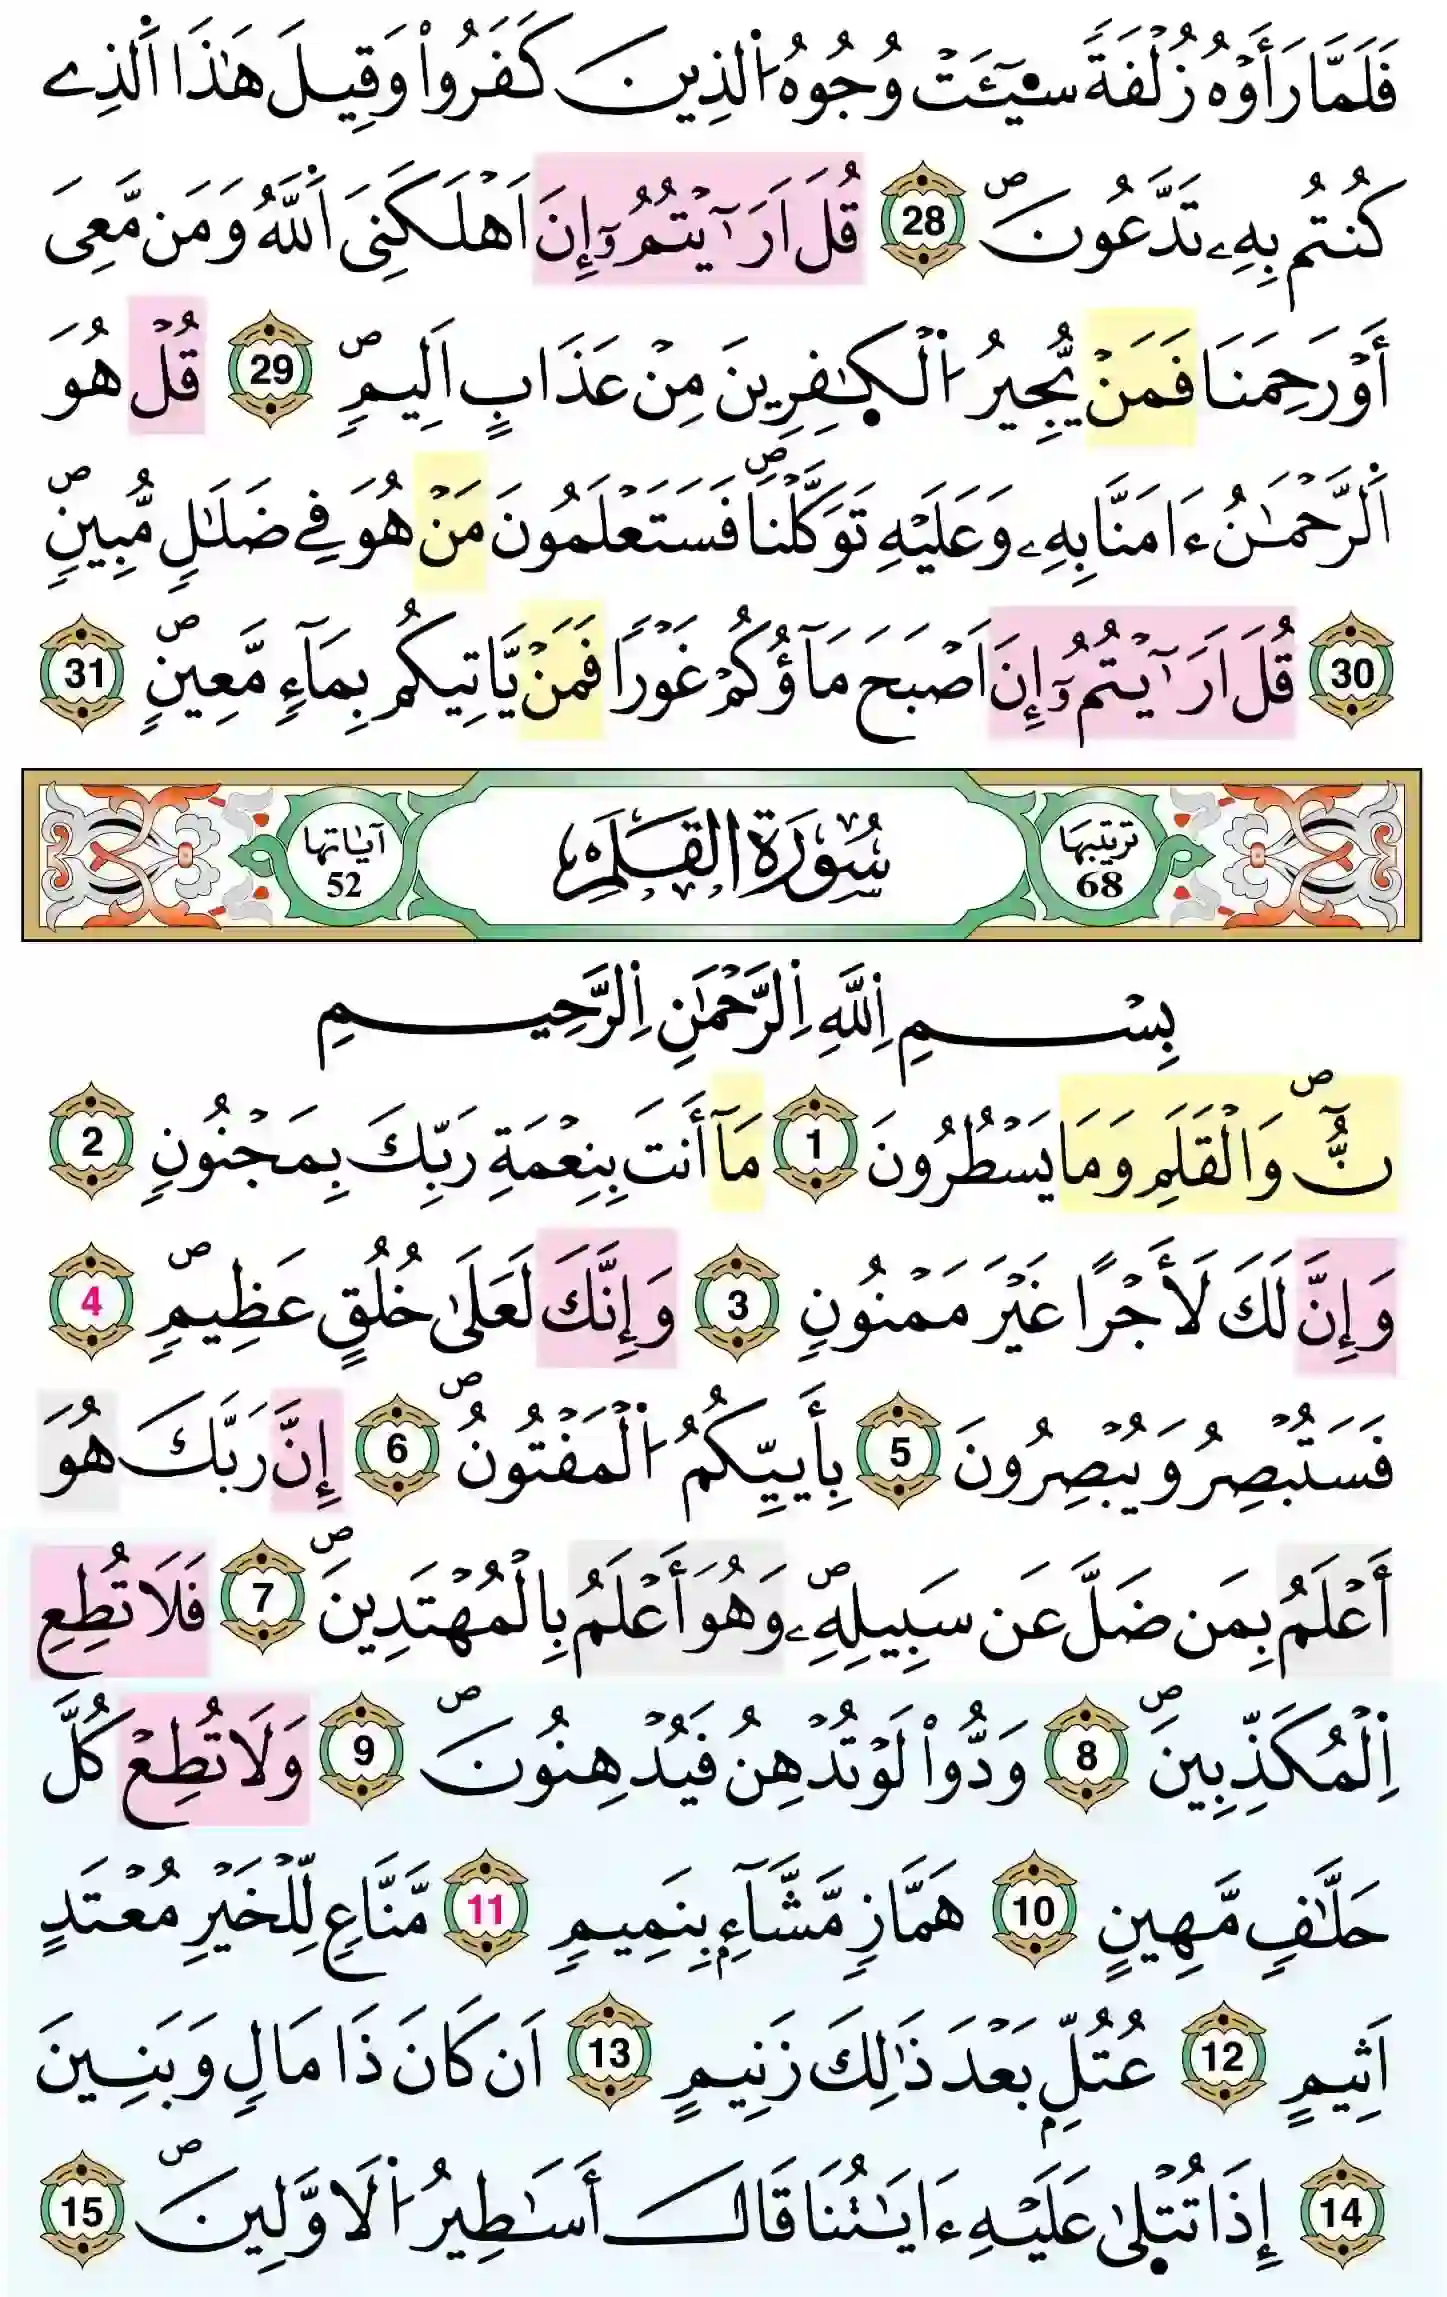 فَلَمَّا رَأَوْهُ زُلْفَةً سِيٓـَٔتْ وُجُوهُ اُ۬لذِينَ كَفَرُواْ وَقِيلَ هَٰذَا اَ۬لذِے
كُنتُم بِهِۦ تَدَّعُونَۖ 28 قُلَ اَرَٰٓيْتُمُۥٓ إِنَ اَهْلَكَنِيَ اَ۬للَّهُ وَمَن مَّعِيَ
أَوْ رَحِمَنَا فَمَنْ يُّجِيرُ اُ۬لْكٰ۪فِرِينَ مِنْ عَذَابٍ اَلِيمٖۖ 29 قُلْ هُوَ
اَ۬لرَّحْمَٰنُ ءَامَنَّا بِهِۦ وَعَلَيْهِ تَوَكَّلْنَاۖ فَسَتَعْلَمُونَ مَنْ هُوَ فِے ضَلَٰلٖ مُّبِينٖۖ
30 قُلَ اَرَٰٓيْتُمُۥٓ إِنَ اَصْبَحَ مَآؤُكُمْ غَوْراٗ فَمَنْ يَّاتِيكُم بِمَآءٖ مَّعِينٖۖ 31
ترتيبها 68 سُورَةُ القَلَمِ آيَاتها 52
بِسْمِ اِ۬للَّهِ اِ۬لرَّحْمَٰنِ اِ۬لرَّحِيمِ
نُّٓۖ وَالْقَلَمِ وَمَا يَسْطُرُونَ 1 مَآ أَنتَ بِنِعْمَةِ رَبِّكَ بِمَجْنُونٖ 2
وَإِنَّ لَكَ لَأَجْراً غَيْرَ مَمْنُونٖ 3 وَإِنَّكَ لَعَلَىٰ خُلُقٍ عَظِيمٖۖ 4
فَسَتُبْصِرُ وَيُبْصِرُونَ 5 بِأَييِّكُمُ اُ۬لْمَفْتُونُۖ 6 إِنَّ رَبَّكَ هُوَ
أَعْلَمُ بِمَن ضَلَّ عَن سَبِيلِهِۦۖ وَهُوَ أَعْلَمُ بِالْمُهْتَدِينَۖ 7 فَلَا تُطِعِ
اِ۬لْمُكَذِّبِينَۖ 8 وَدُّواْ لَوْ تُدْهِنُ فَيُدْهِنُونَۖ 9 وَلَا تُطِعْ كُلَّ
حَلَّافٖ مَّهِينٍ 10 هَمَّازٖ مَّشَّآءِۢ بِنَمِيمٖ 11 مَّنَّاعٖ لِّلْخَيْرِ مُعْتَدٍ
اَثِيمٍ 12 عُتُلِّۢ بَعْدَ ذَٰلِكَ زَنِيمٍ 13 اَن كَانَ ذَا مَالٖ وَبَنِينَ
14 إِذَا تُتْل۪ىٰ عَلَيْهِ ءَايَٰتُنَا قَالَ أَسَٰطِيرُ اُ۬لَاوَّلِينَۖ 15